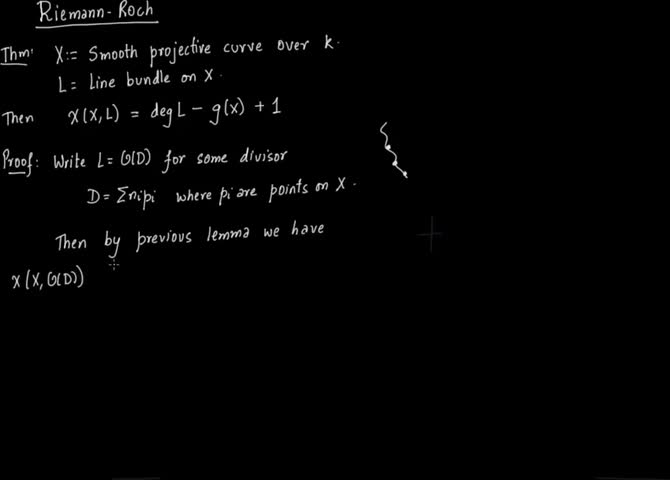 Riemann-Roch
Thm: X:= Smooth projective curve over k.
L = Line bundle on X.
Then χ(X,L) = deg L - g(X) + 1
Proof: Write L = O(D) for some divisor
D = Σnipi where pi are points on X.
Then by previous lemma we have
χ(X, O(D))